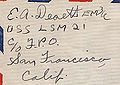 E.A. Denett EM3/c
USS LSM 21
c/o F.P.O.
San Francisco
Calif.